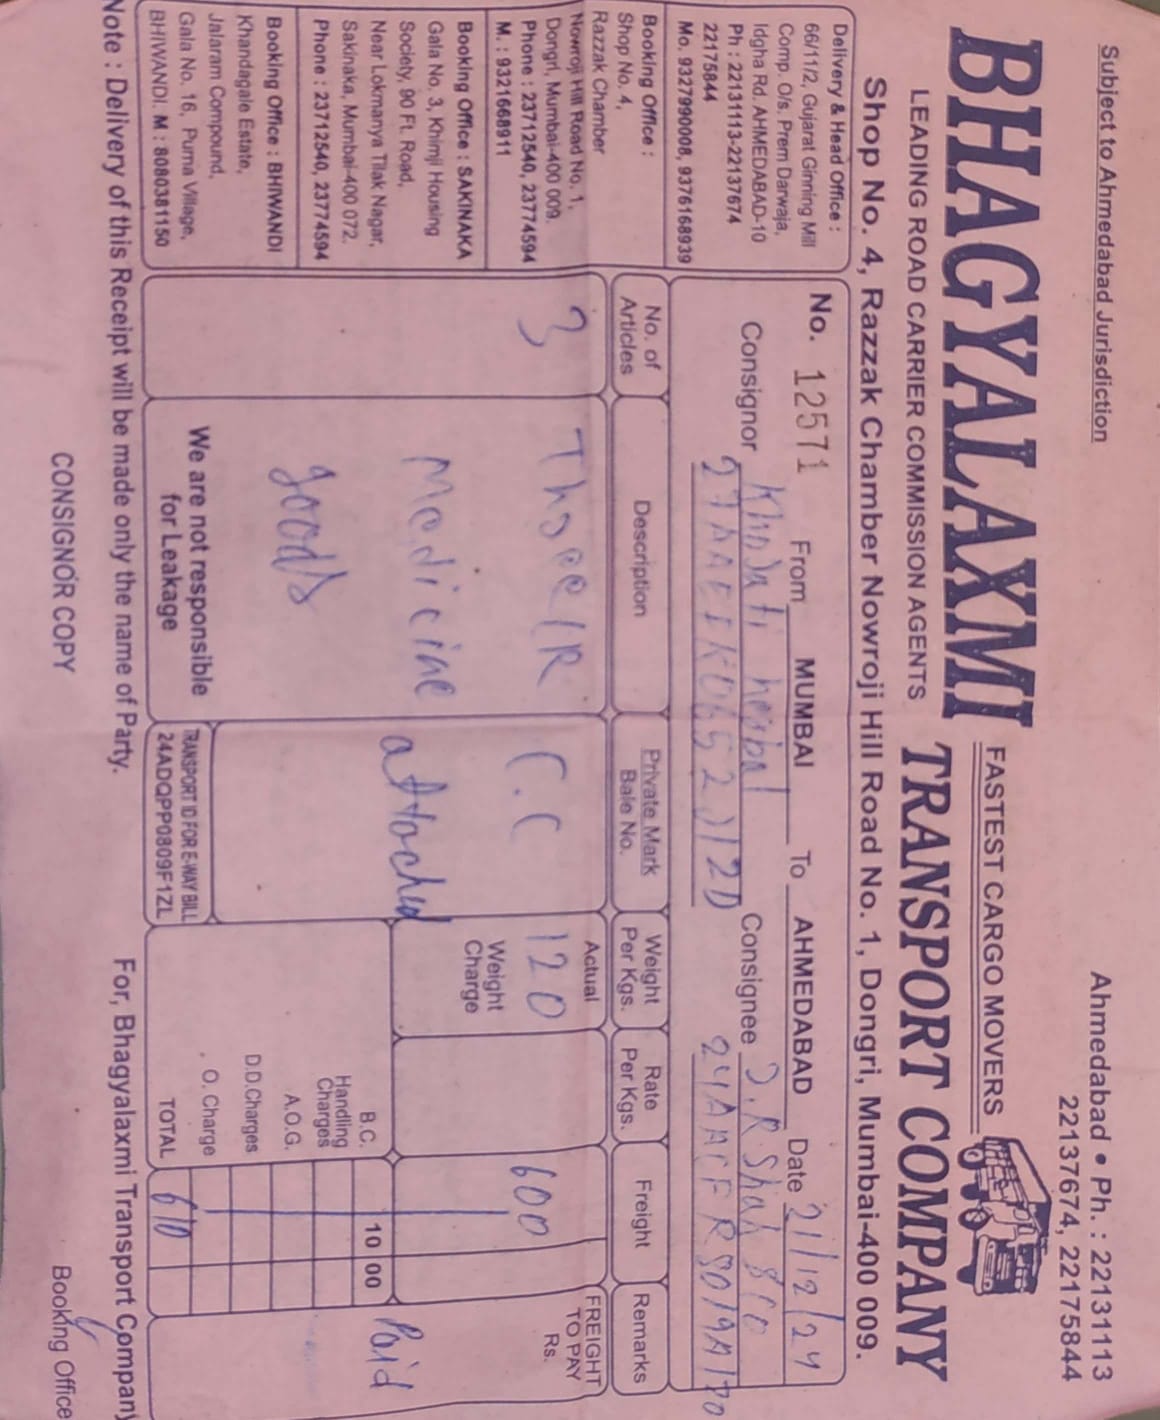 Subject to Ahmedabad Jurisdiction
Ahmedabad • Ph. : 22131113
22137674, 22175844
BHAGYALAXMI
FASTEST CARGO MOVERS
TRANSPORT COMPANY
LEADING ROAD CARRIER COMMISSION AGENTS
Shop No. 4, Razzak Chamber Nowroji Hill Road No. 1, Dongri, Mumbai-400 009.
Delivery & Head Office :
66/11/2, Gujarat Ginning Mill
Comp. O/s. Prem Darwaja,
Idgha Rd. AHMEDABAD-10
Ph : 22131113-22137674
22175844
Mo. 9327990008, 9376168939
Booking Office :
Shop No. 4,
Razzak Chamber
Nowroji Hill Road No. 1,
Dongri, Mumbai-400 009.
Phone : 23712540, 23774594
M. : 9321668911
Booking Office : SAKINAKA
Gala No. 3, Khimji Housing
Society, 90 Ft. Road,
Near Lokmanya Tilak Nagar,
Sakinaka, Mumbai-400 072.
Phone : 23712540, 23774594
Booking Office : BHIWANDI
Khandagale Estate,
Jalaram Compound,
Gala No. 16, Purna Village,
BHIWANDI. M : 8080381150
No. 12571 From MUMBAI To AHMEDABAD Date 21/12/24
Consignor Khojati herbal Consignee J.R. Shah &co
No. of Articles
Description
Private Mark
Bale No.
Weight Per Kgs.
Rate Per Kgs.
Freight
Remarks
3
Medicine
goods
C.C
attached
Actual
120
Weight
Charge
600
FREIGHT
TO PAY
Rs.
Paid
B.C. 10 00
Handling
Charges
A.O.G.
D.D.Charges
O. Charge
TOTAL 610
We are not responsible
for Leakage
TRANSPORT ID FOR E-WAY BILL
24ADQPP0809F1ZL
Note : Delivery of this Receipt will be made only the name of Party.
For, Bhagyalaxmi Transport Company
CONSIGNOR COPY
Booking Office